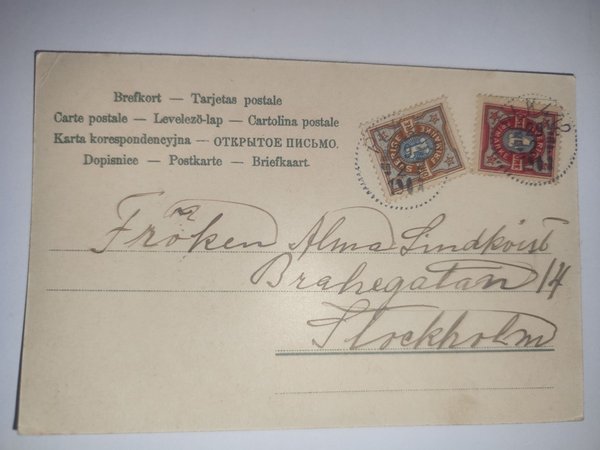 Brefkort — Tarjetas postale
Carte postale — Levelező-lap — Cartolina postale
Karta korespondencyjna — ОТКРЫТОЕ ПИСЬМО.
Dopisnice — Postkarte — Briefkaart.
Fröken Alma Lindkvist
Brahegatan 14
Stockholm